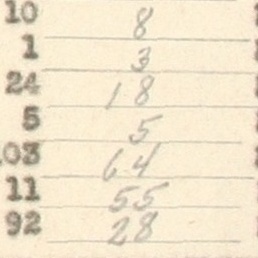 10 8
1 3
24 18
5 5
103 64
11 55
92 28